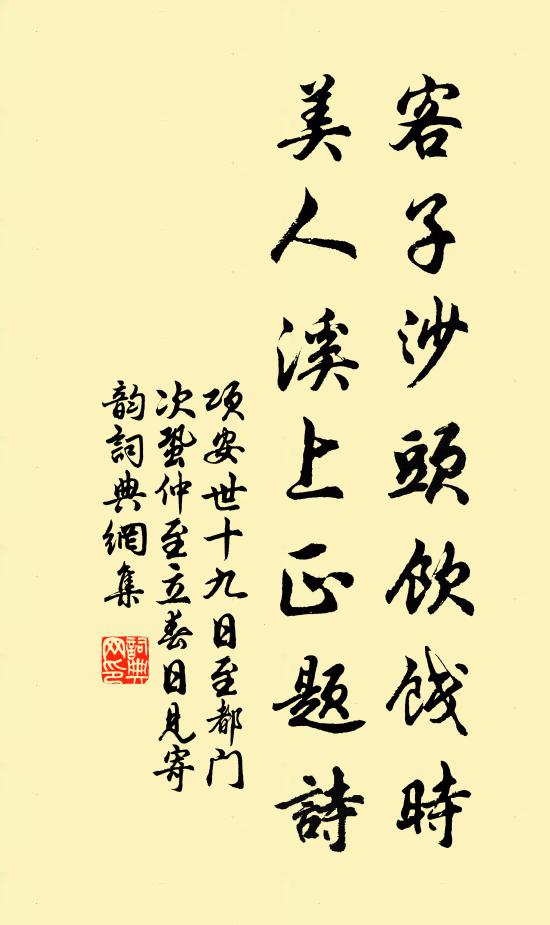 客子沙頭飲餞時
美人溪上正題詩
項安世十九日至都門
次蛩仲至立春日見寄
韵詞典網集
詞典
网印